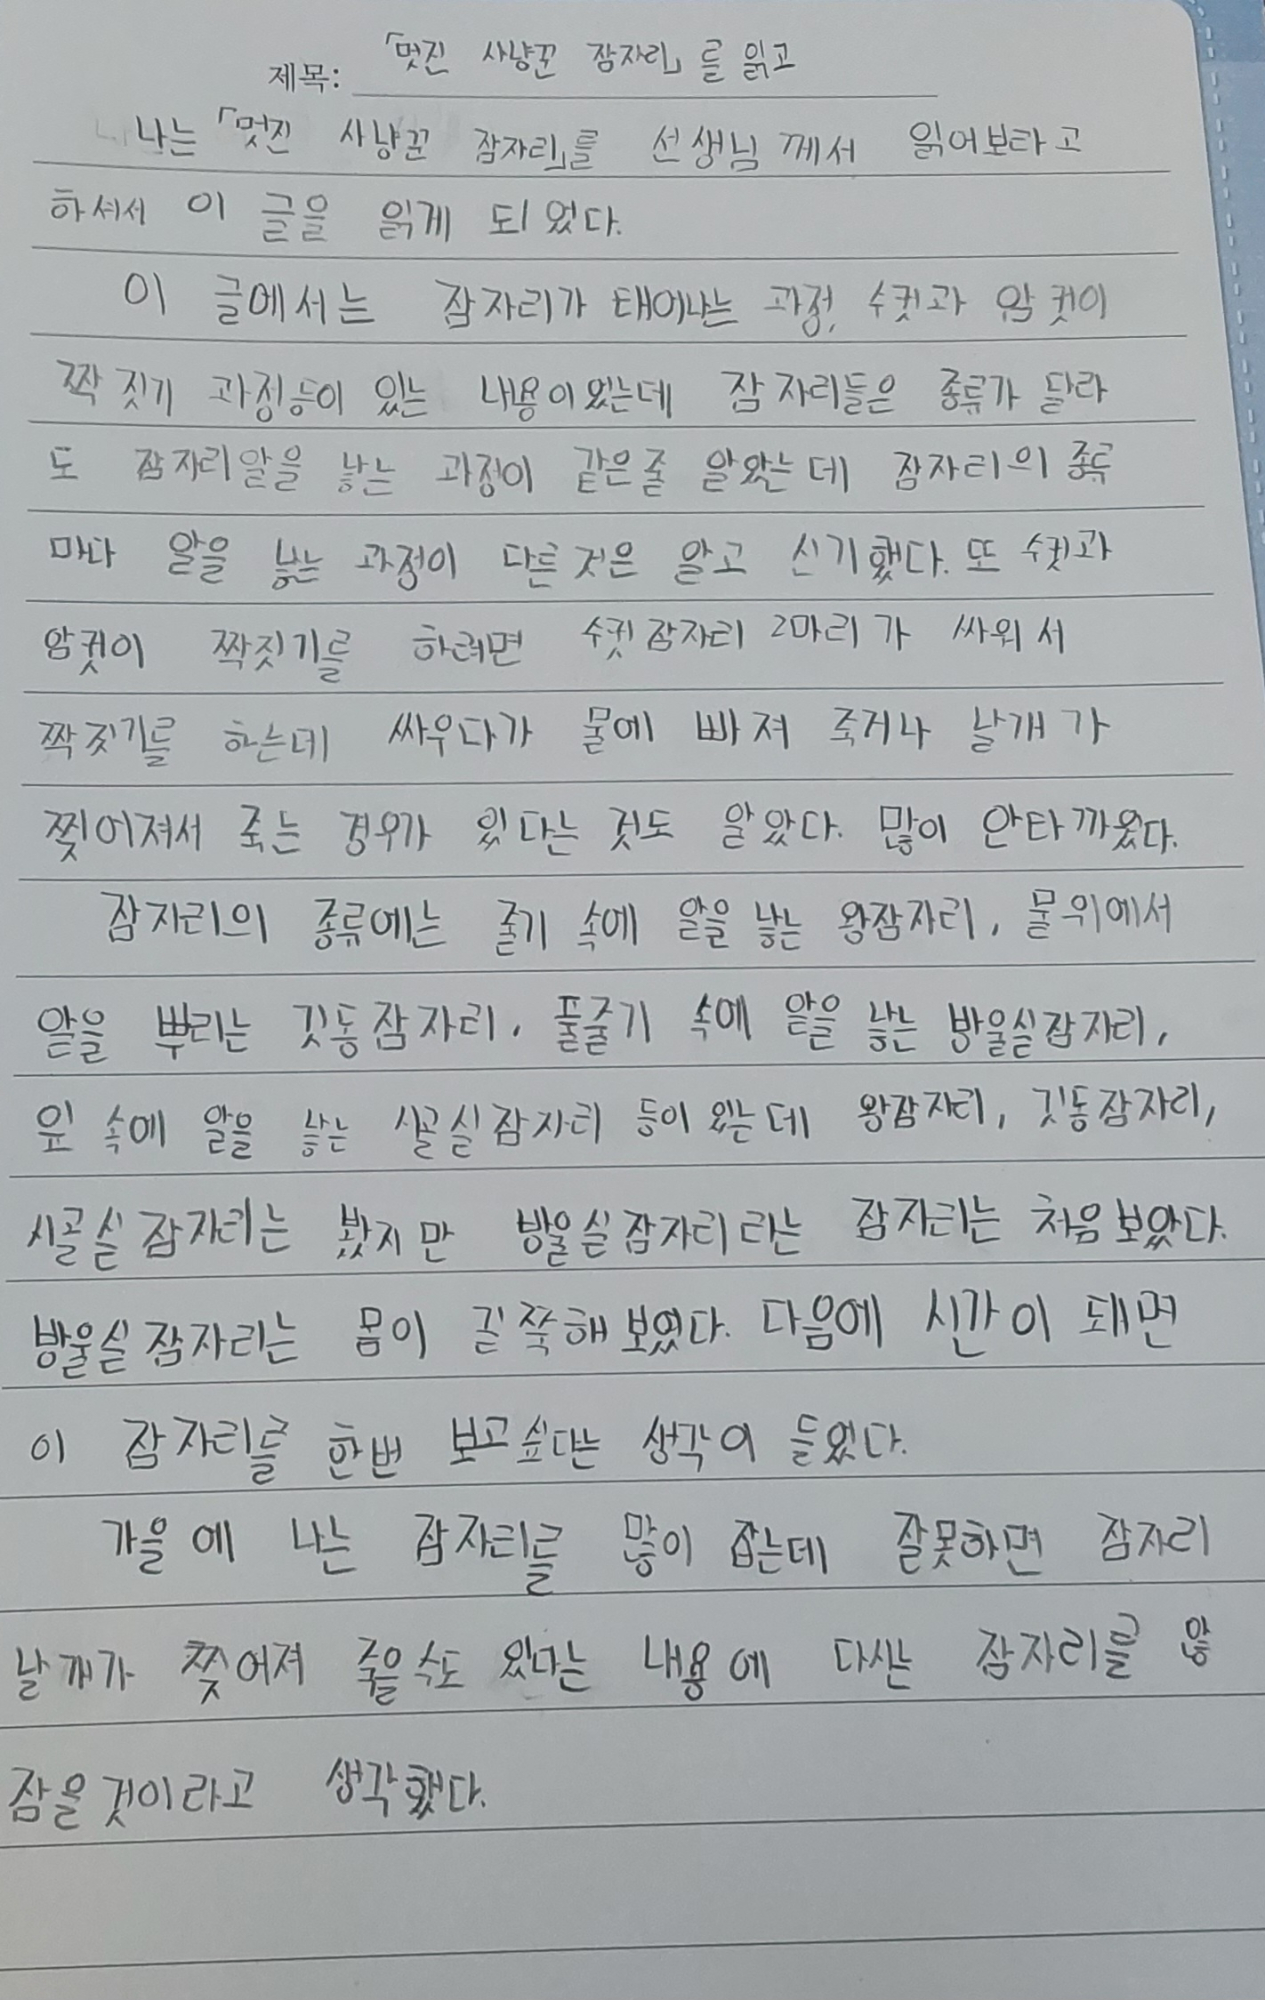 제목: 「멋진 사냥꾼 잠자리」를 읽고
나는 「멋진 사냥꾼 잠자리」를 선생님께서 읽어보라고
하셔서 이 글을 읽게 되었다.
이 글에서는 잠자리가 태어나는 과정, 수컷과 암컷이
짝짓기 과정등이 있는 내용이 있는데 잠자리들은 종류가 달라
도 잠자리알을 낳는 과정이 같은줄 알았는데 잠자리의 종류
마다 알을 낳는 과정이 다른것은 알고 신기했다. 또 수컷과
암컷이 짝짓기를 하려면 수컷잠자리 2마리가 싸워서
짝짓기를 하는데 싸우다가 물에 빠져 죽거나 날개가
찢어져서 죽는 경우가 있다는 것도 알았다. 많이 안타까웠다.
잠자리의 종류에는 줄기 속에 알을 낳는 왕잠자리, 물위에서
알을 뿌리는 깃동잠자리, 풀줄기 속에 알을 낳는 방울실잠자리,
잎 속에 알을 낳는 시골실잠자리 등이 있는데 왕잠자리, 깃동잠자리,
시골실잠자리는 봤지만 방울실잠자리라는 잠자리는 처음보았다.
방울실잠자리는 몸이 길쭉해보였다. 다음에 시간이 돼면
이 잠자리를 한번 보고싶다는 생각이 들었다.
가을에 나는 잠자리를 많이 잡는데 잘못하면 잠자리
날개가 찢어져 죽을수도 있다는 내용에 다시는 잠자리를 않
잠을것이라고 생각했다.